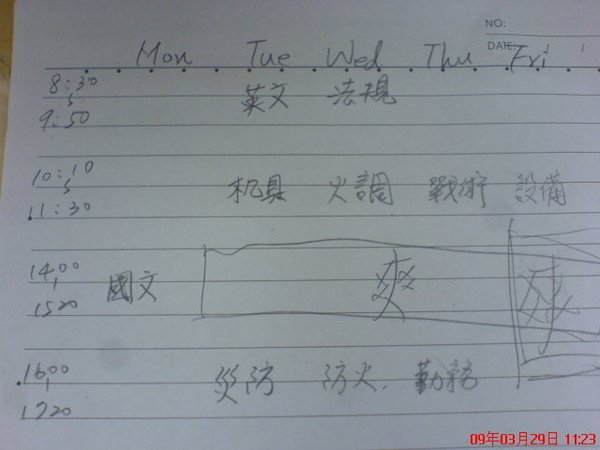 NO:
DATE:
Mon Tue Wed Thu Fri
8:30 英文 法規
9:50
10:10 机具 火調 戰術 設備
11:30
14:00 國文 爽 爽
1520
16:00 災防 防火. 勤務
1720
09年03月29日 11:23